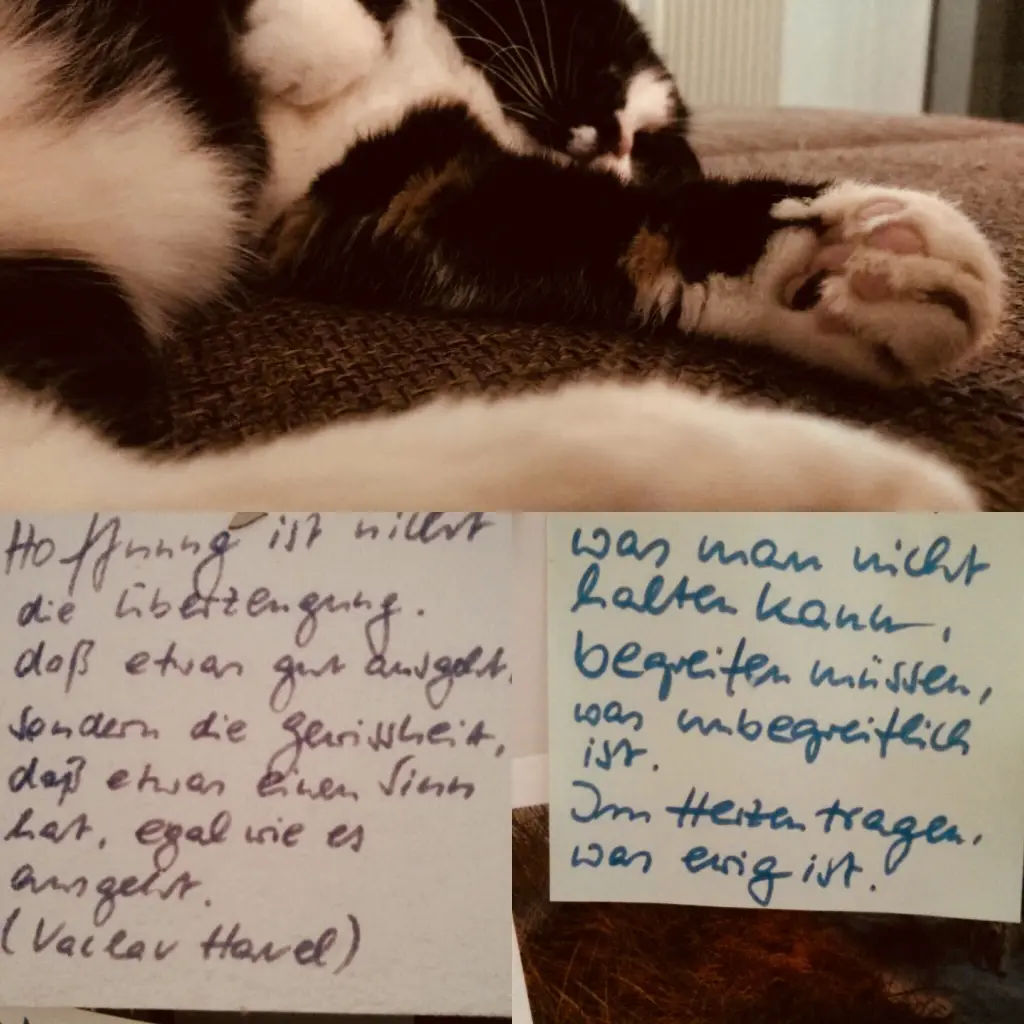 Hoffnung ist nicht
die Überzeugung.
daß etwas gut ausgeht,
sondern die Gewissheit,
daß etwas einen Sinn
hat, egal wie es
ausgeht.
(Vaclav Havel)
was man nicht
halten kann,
begreifen müssen,
was unbegreiflich
ist.
Im Herzen tragen,
was ewig ist.